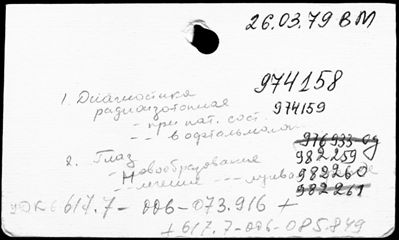 26.03.79 ВМ
974158
1. Диагностика
радиоизотопная
974159
- при пат. сост.
- - в офтальмологии
976933-од
2. Глаз
982259
- Новообразование
982260
- - - лечение - - -
982261
УДК 617.7-006-073.916 +
+ 617.7-006-085.849